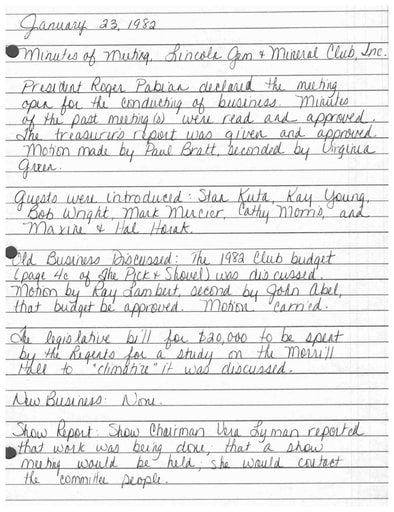 January 23, 1982
Minutes of Meeting, Lincoln Gem & Mineral Club, Inc.
President Roger Pabian declared the meeting
open for the conducting of business. Minutes
of the past meeting(s) were read and approved.
The treasurer's report was given and approved.
Motion made by Paul Bratt, seconded by Virginia
Green.
Guests were introduced: Stan Kuta, Kay Young,
Bob Wright, Mark Mercier, Cathy Morris, and
Maxine & Hal Horak.
Old Business Discussed: The 1982 Club budget
(page 4c of The Pick & Shovel) was discussed.
Motion by Ray Lambert, second by John Abel,
that budget be approved. Motion carried.
The legislative bill for $20,000 to be spent
by the Regents for a study on the Morrill
Hall to "climatize" it was discussed.
New Business: None.
Show Report: Show Chairman Vera Lyman reported
that work was being done; that a show
meeting would be held; she would contact
the committee people.